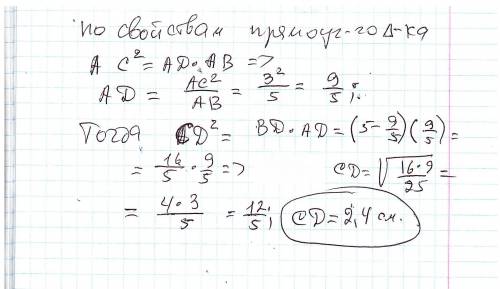 По свойствам прямоуг-го Δ-ка
AC² = AD·AB =>
AD = AC²/AB = 3²/5 = 9/5;
Тогда CD² = BD·AD = (5-9/5)(9/5) =
= 16/5·9/5 => CD = √(16·9/25) =
= 4·3/5 = 12/5; CD = 2,4 см.